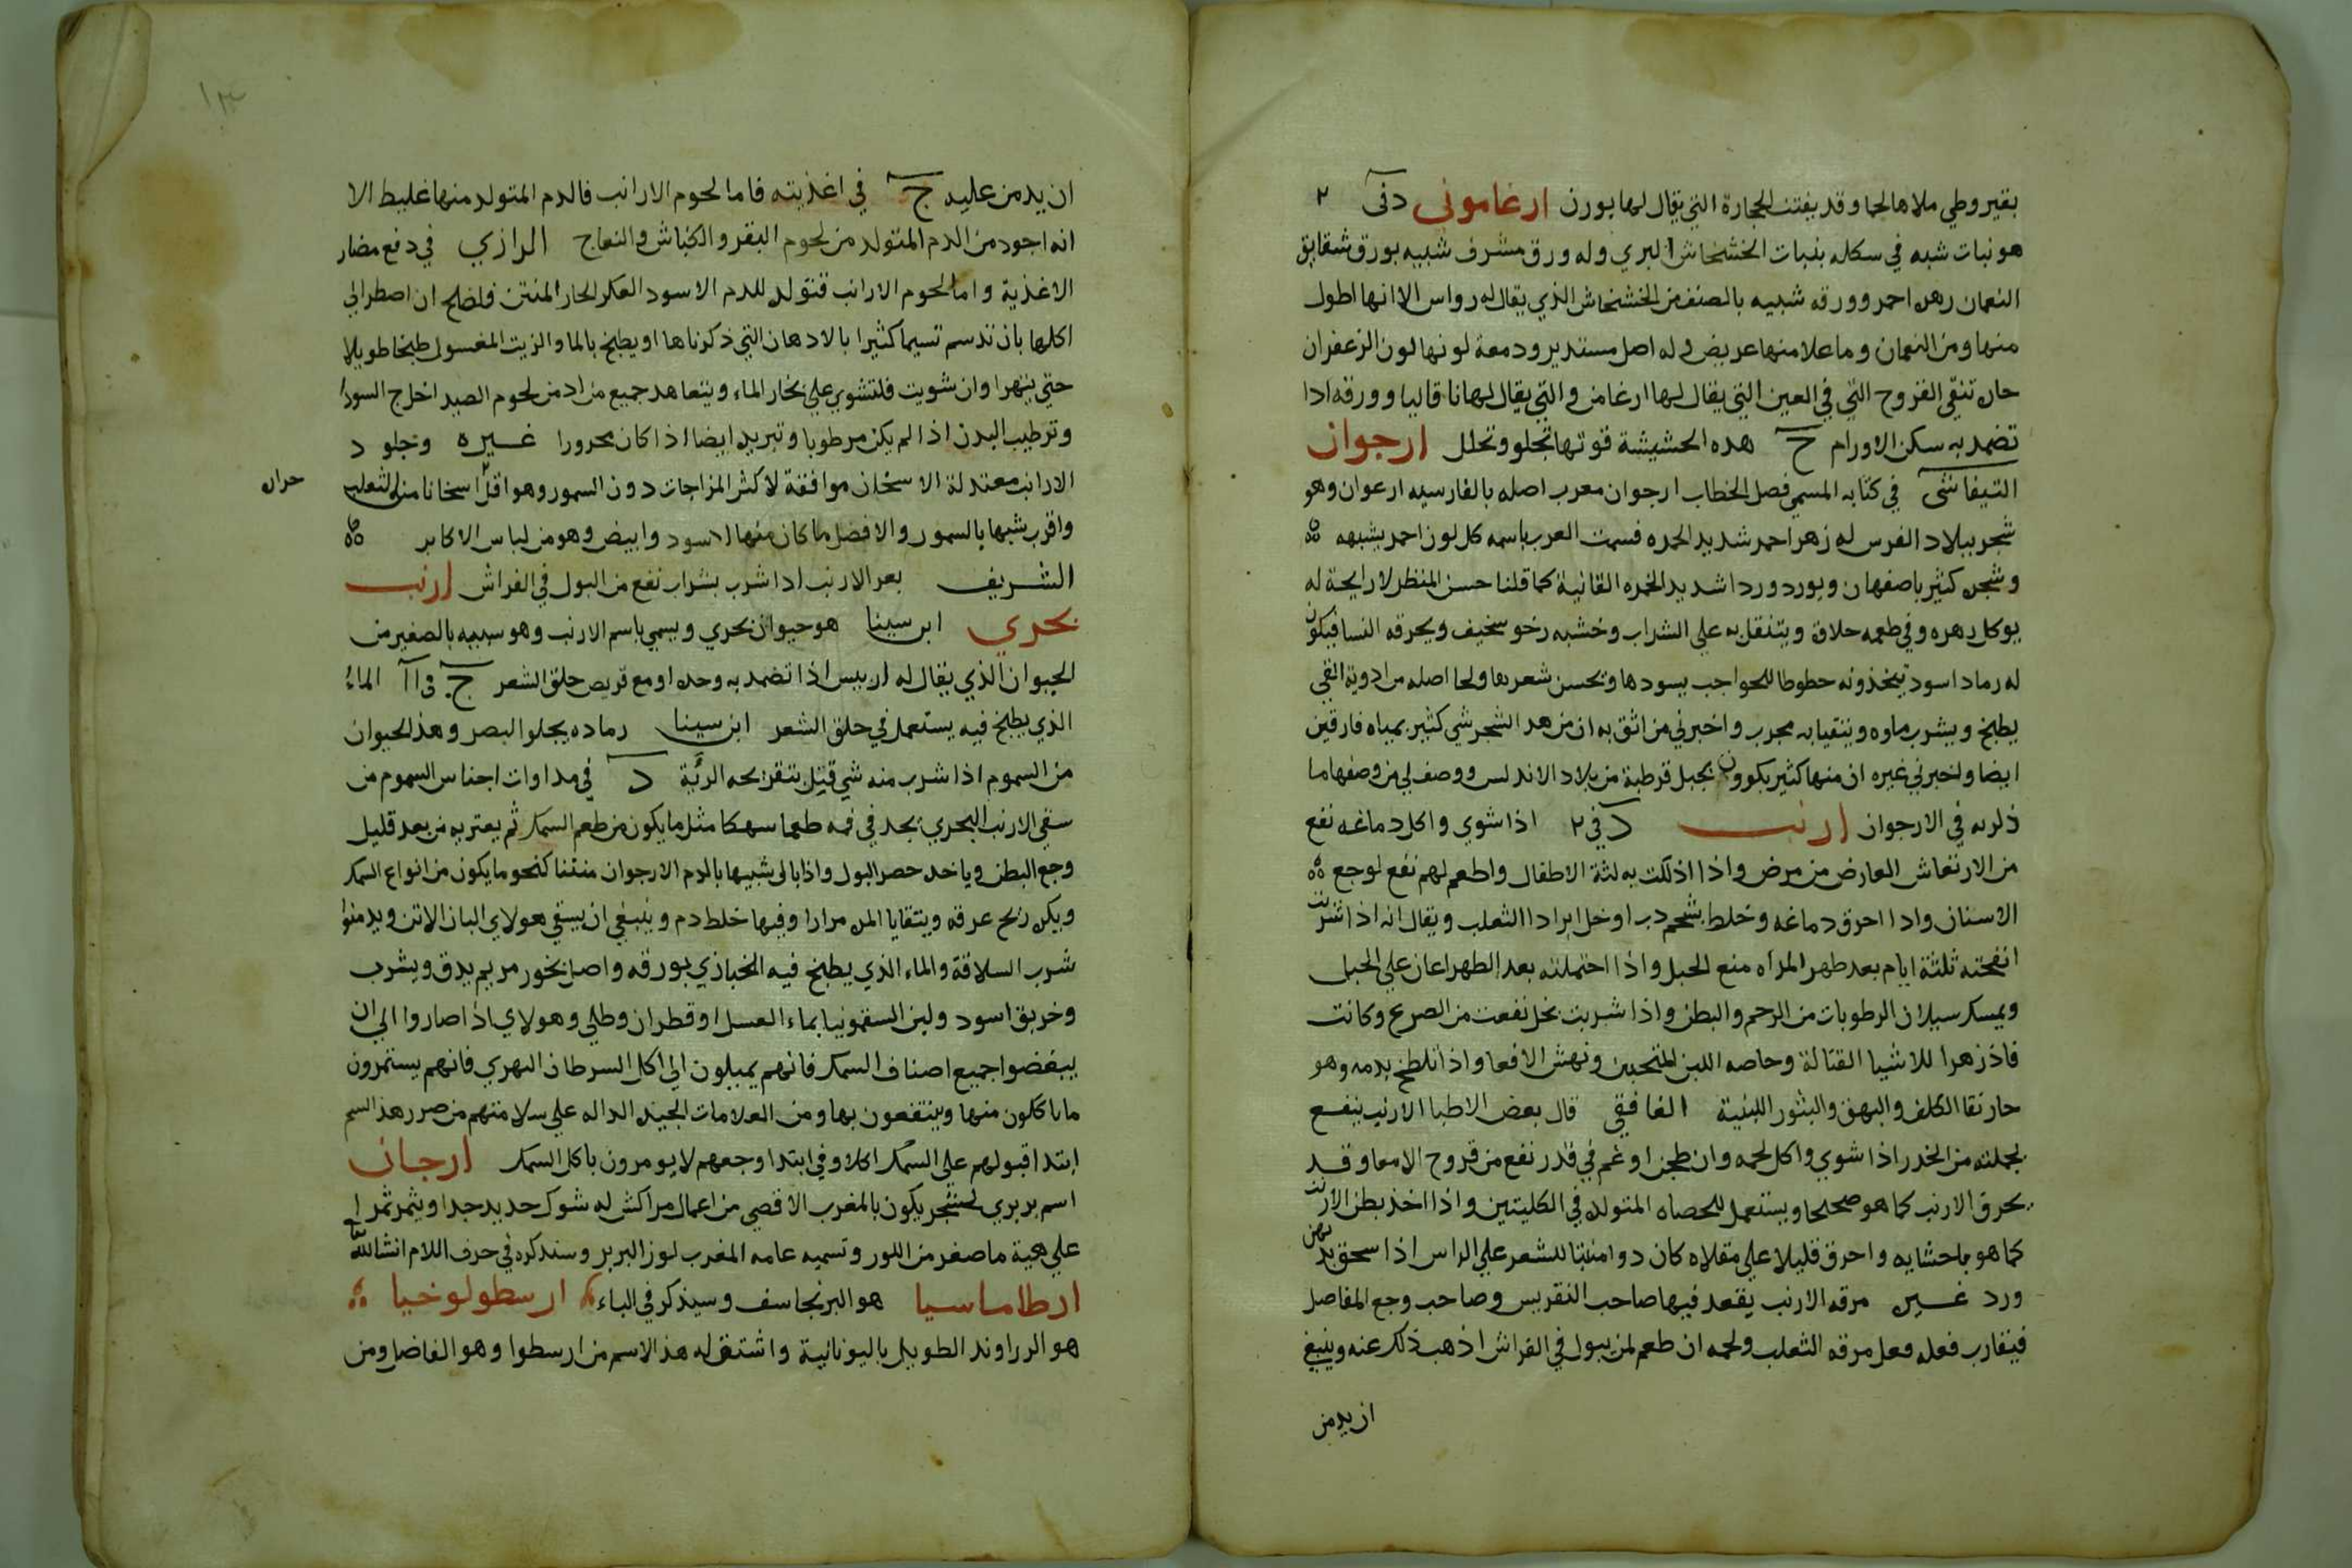 بقيروطي ملاها لحما وقد يفتت الحجارة التي يقال لها بورن ارغاموني د في ٢
هو نبات شبه في سكله بنبات الخشخاش البري وله ورق مشرف شبيه بورق شقايق
النعمان زهره احمر وورقه شبيه بالصنف من الخشخاش الذي يقال له رواس الا انها اطول
منها ومن النعمان وما علا منها عريض وله اصل مستدير ودمعة لونها لون الزعفران
حاره تنقي القروح التي في العين التي يقال لها ارغامن والتي يقال لها ناقاليا وورقه ادا
تضمد به سكن الاورام ج هده الحشيشة قوتها تجلو وتحلل ارجوان
التيفاشي في كتابه المسمي فصل الخطاب ارجوان معرب اصله بالفارسيه ارعوان وهو
شجر ببلاد الفرس له زهر احمر شديد الحمره فسمت العرب باسمه كل لون احمر يشبهه
وشجره كثير باصفهان ويورد وردا شديد الحمره القانية كما قلنا حسن المنظر لا رايحة له
يوكل زهره وفي طعمه حلاوة ويتنقل به علي الشراب وخشبه رخو سخيف ويحرقه النسا فيكون
له رماد اسود يتخذونه خطوطا للحواجب يسودها ويحسن شعرها ولحا اصله من ادوية القي
يطبخ ويشرب ماوه ويتقيا به مجرب واخبرني من اثق به ان من هد الشجر شي كثير بمياه فارقين
ايضا واخبرني غيره ان منها كثير يكوون بجبل قرطبة من بلاد الاندلس ووصف لي من وصفها ما
ذلربه في الارجوان ارنب د في ٢ اذا شوي واكل دماغه نفع
من الارتعاش العارض من مرض واذا ادلكت به لثة الاطفال واطعم لهم نفع لوجع
الاسنان وادا احرق دماغه وخلط بشحم دب او خل ابرا داا الثعلب ويقال انه اذا شربت
انفحته ثلثة ايام بعد طهر المراه منع الحبل واذا احتملته بعد الطهر اعان علي الحبل
ويمسك سيلان الرطوبات من الرحم والبطن واذا شربت بخل نفعت من الصرع وكانت
فاذزهرا للاشيا القتالة وخاصه اللبن المتجبن ونهش الافعا واذا تلطخ بدمه وهو
حار نقا الكلف والبهق والبثور اللبنية الغافقي قال بعض الاطبا الارنب ينفع
بجملته من الخدر اذا شوي واكل لحمه وان طبخ او غم في قدر نفع من قروح الامعا وقد
يحرق الارنب كما هو صحيحا ويستعمل للحصاه المتولده في الكليتين واذا اخذ بطن الارنب
كما هو باحشايه واحرق قليلا علي مقلاه كان دوا منبتا للشعر علي الراس اذا سحق بدهن
ورد غيره مرقه الارنب يقعد فيها صاحب النقريس وصاحب وجع المفاصل
فيقارب فعله فعل مرقه الثعلب ولحمه ان طعم لمن يبول في الفراش اذهب ذلك عنه وينبغي
ان يدمن
١٣
ان يدمن عليه ج في اغذيته فاما لحوم الارانب فالدم المتولد منها غليظ الا
انه اجود من الدم المتولد من لحوم البقر والكباش والنعاج الرازي في دفع مضار
الاغذية واما لحوم الارانب فتولد للدم الاسود العكر الحار المنتن فلصلح ان اصطر الي
اكلها بان تدسم تسيما كثيرا بالادهان التي ذكرناها او يطبخ بالما والزيت المغسول طبخا طويلا
حتي يتهرا وان شويت فلتشوي علي بخار الماء ويتعاهد جميع من ادمن لحوم الصيد اخراج السودا
وترطيب البدن اذا لم يكن مرطوبا وتبريد ايضا اذا كان محرورا غيره وجلود
الارانب معتدلة الاسخان موافقة لاكثر المزاجات دون السمور وهو اقل اسخانا من الثعلب
حراره
واقرب شبها بالسمور والافضل ما كان منها الاسود وابيض وهو من لباس الاكابر
الشريف بعر الارنب ادا شرب بشراب نفع من البول في الفراش ارنب
بحري ابن سينا هو حيوان بحري ويسمي باسم الارنب وهو سبيه بالصغير من
الحيوان الذي يقال له اربيس اذا تضمد به وحده او مع قريص حلق الشعر ج في اا الماء
الذي يطبخ فيه يستعمل في حلق الشعر ابن سينا رماده يجلو البصر وهذ الحيوان
من السموم اذا شرب منه شي قيتل بتقريحه الرئة د في مداوات اجناس السموم من
سقي الارنب البحري يجد في فمه طعما سهكا مثل ما يكون من طعم السمك ثم يعتريه من بعد قليل
وجع البطن وياخده حصر البول واذا بال شبيها بالدم الارجوان منتنا كنحو ما يكون من انواع السمك
ويكره ريح عرقه ويتقايا المره مرارا وفيها خلط دم وينبغي ان يسقي هولاي البان الاتن ويدمنوا
شرب السلاقة والماء الذي يطبخ فيه الخبازي بورقه واصل بخور مريم يدق ويشرب
وخربق اسود ولبن السقمونيا بماء العسل او قطران وطلي وهولاي اذا صاروا الي ان
يبغضوا جميع اصناف السمك فانهم يميلون الي اكل السرطان النهري فانهم يستمرون
ما ياكلون منها وينتفعون بها ومن العلامات الجيده الداله علي سلامتهم من صرر هذ السم
ابتدا قبولهم علي السمك اكلا وفي ابتدا وجعهم لا يومرون باكل السمك ارجان
اسم بربري لشجر يكون بالمغرب الاقصي من اعمال مراكش له شوك حديد جدا ويثمر ثمرا
علي هية ما صغر من اللور وتسميه عامه المغرب لوز البربر وسندكره في حرف اللام انشالله
ارطاماسيا هو البرنجاسف وسيذكر في الباء ارسطولوخيا
هو الرراوند الطويل باليونانية واشتق له هذ الاسم من ارسطوا وهو الفاضل ومن